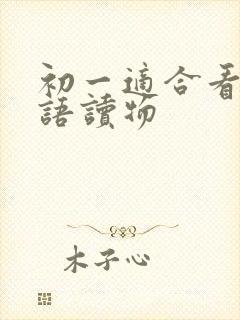 初一適合看
語讀物
木子心